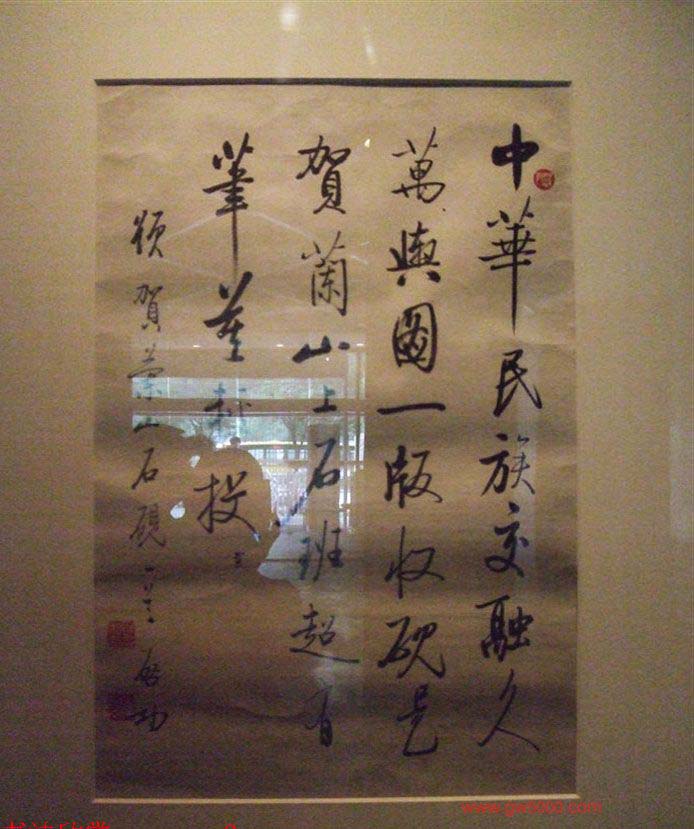 中華民族交融久
萬輿圖一版收硯是
賀蘭山上石班超有
筆莫輕投
頌賀蘭山石硯一首
啟功
www.gw5000.com
书法欣赏